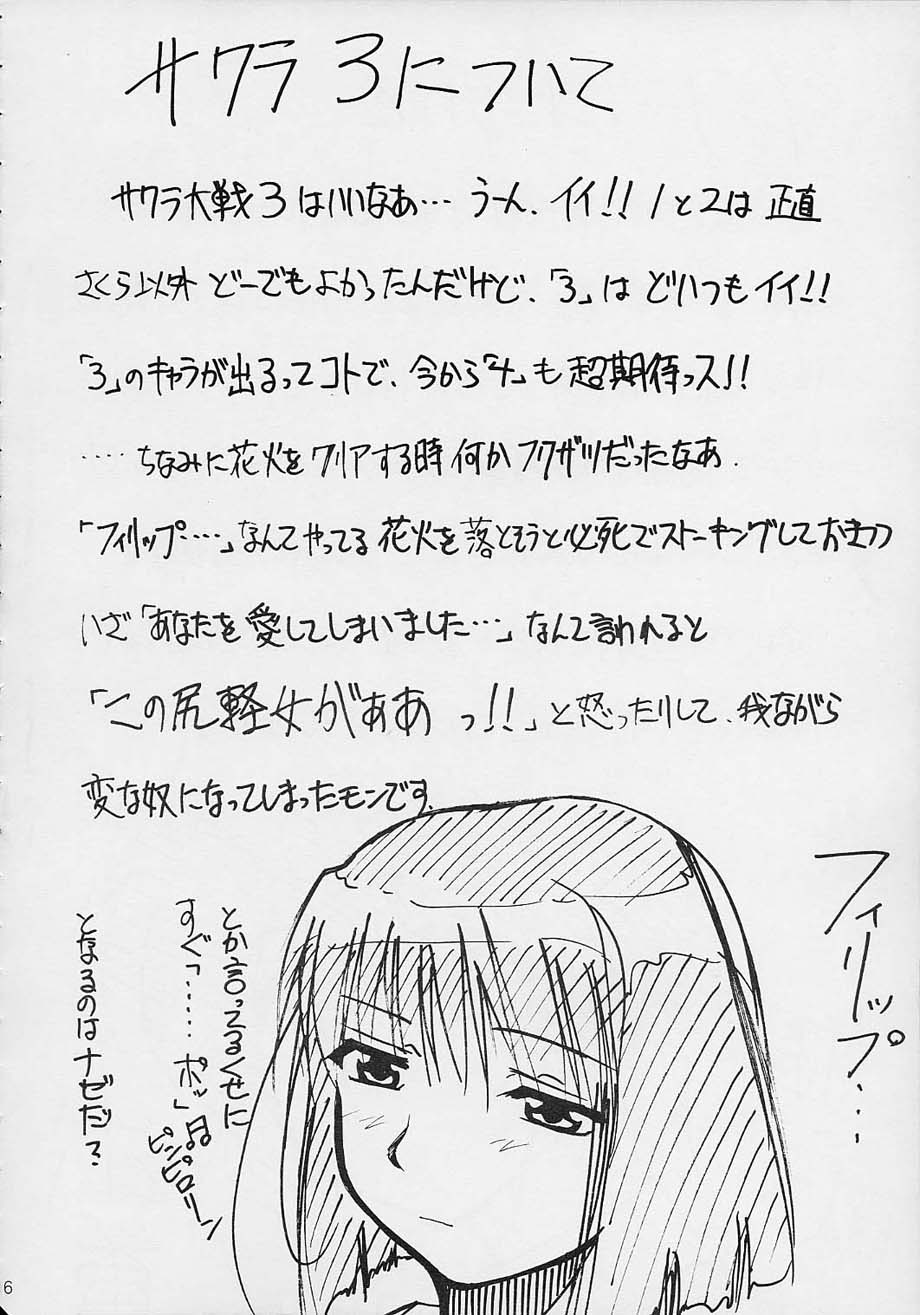 サクラ3について
サクラ大戦3はいいなあ… うーん、イイ!! 1と2は 正直
さくら以外 どーでもよかったんだけど、「3」は どいつもイイ!!
「3」のキャラが出るってコトで、今から「4」も 超期待っス!!
‥‥ ちなみに花火を クリアする時 何かフクザツだったなあ.
「フィリップ‥…」なんてやってる 花火を 落とそうと必死でストーキングしておきつつ
いざ「あなたを 愛してしまいました…」なんて言われると
「この尻軽女がぁああ っ!!」と怒ったりして、我ながら
変な奴になってしまったモンです.
フィリップ…
とか言ってるくせに
すぐ「‥…ポッ」
ピンピロリーン
となるのはナゼだ?
6